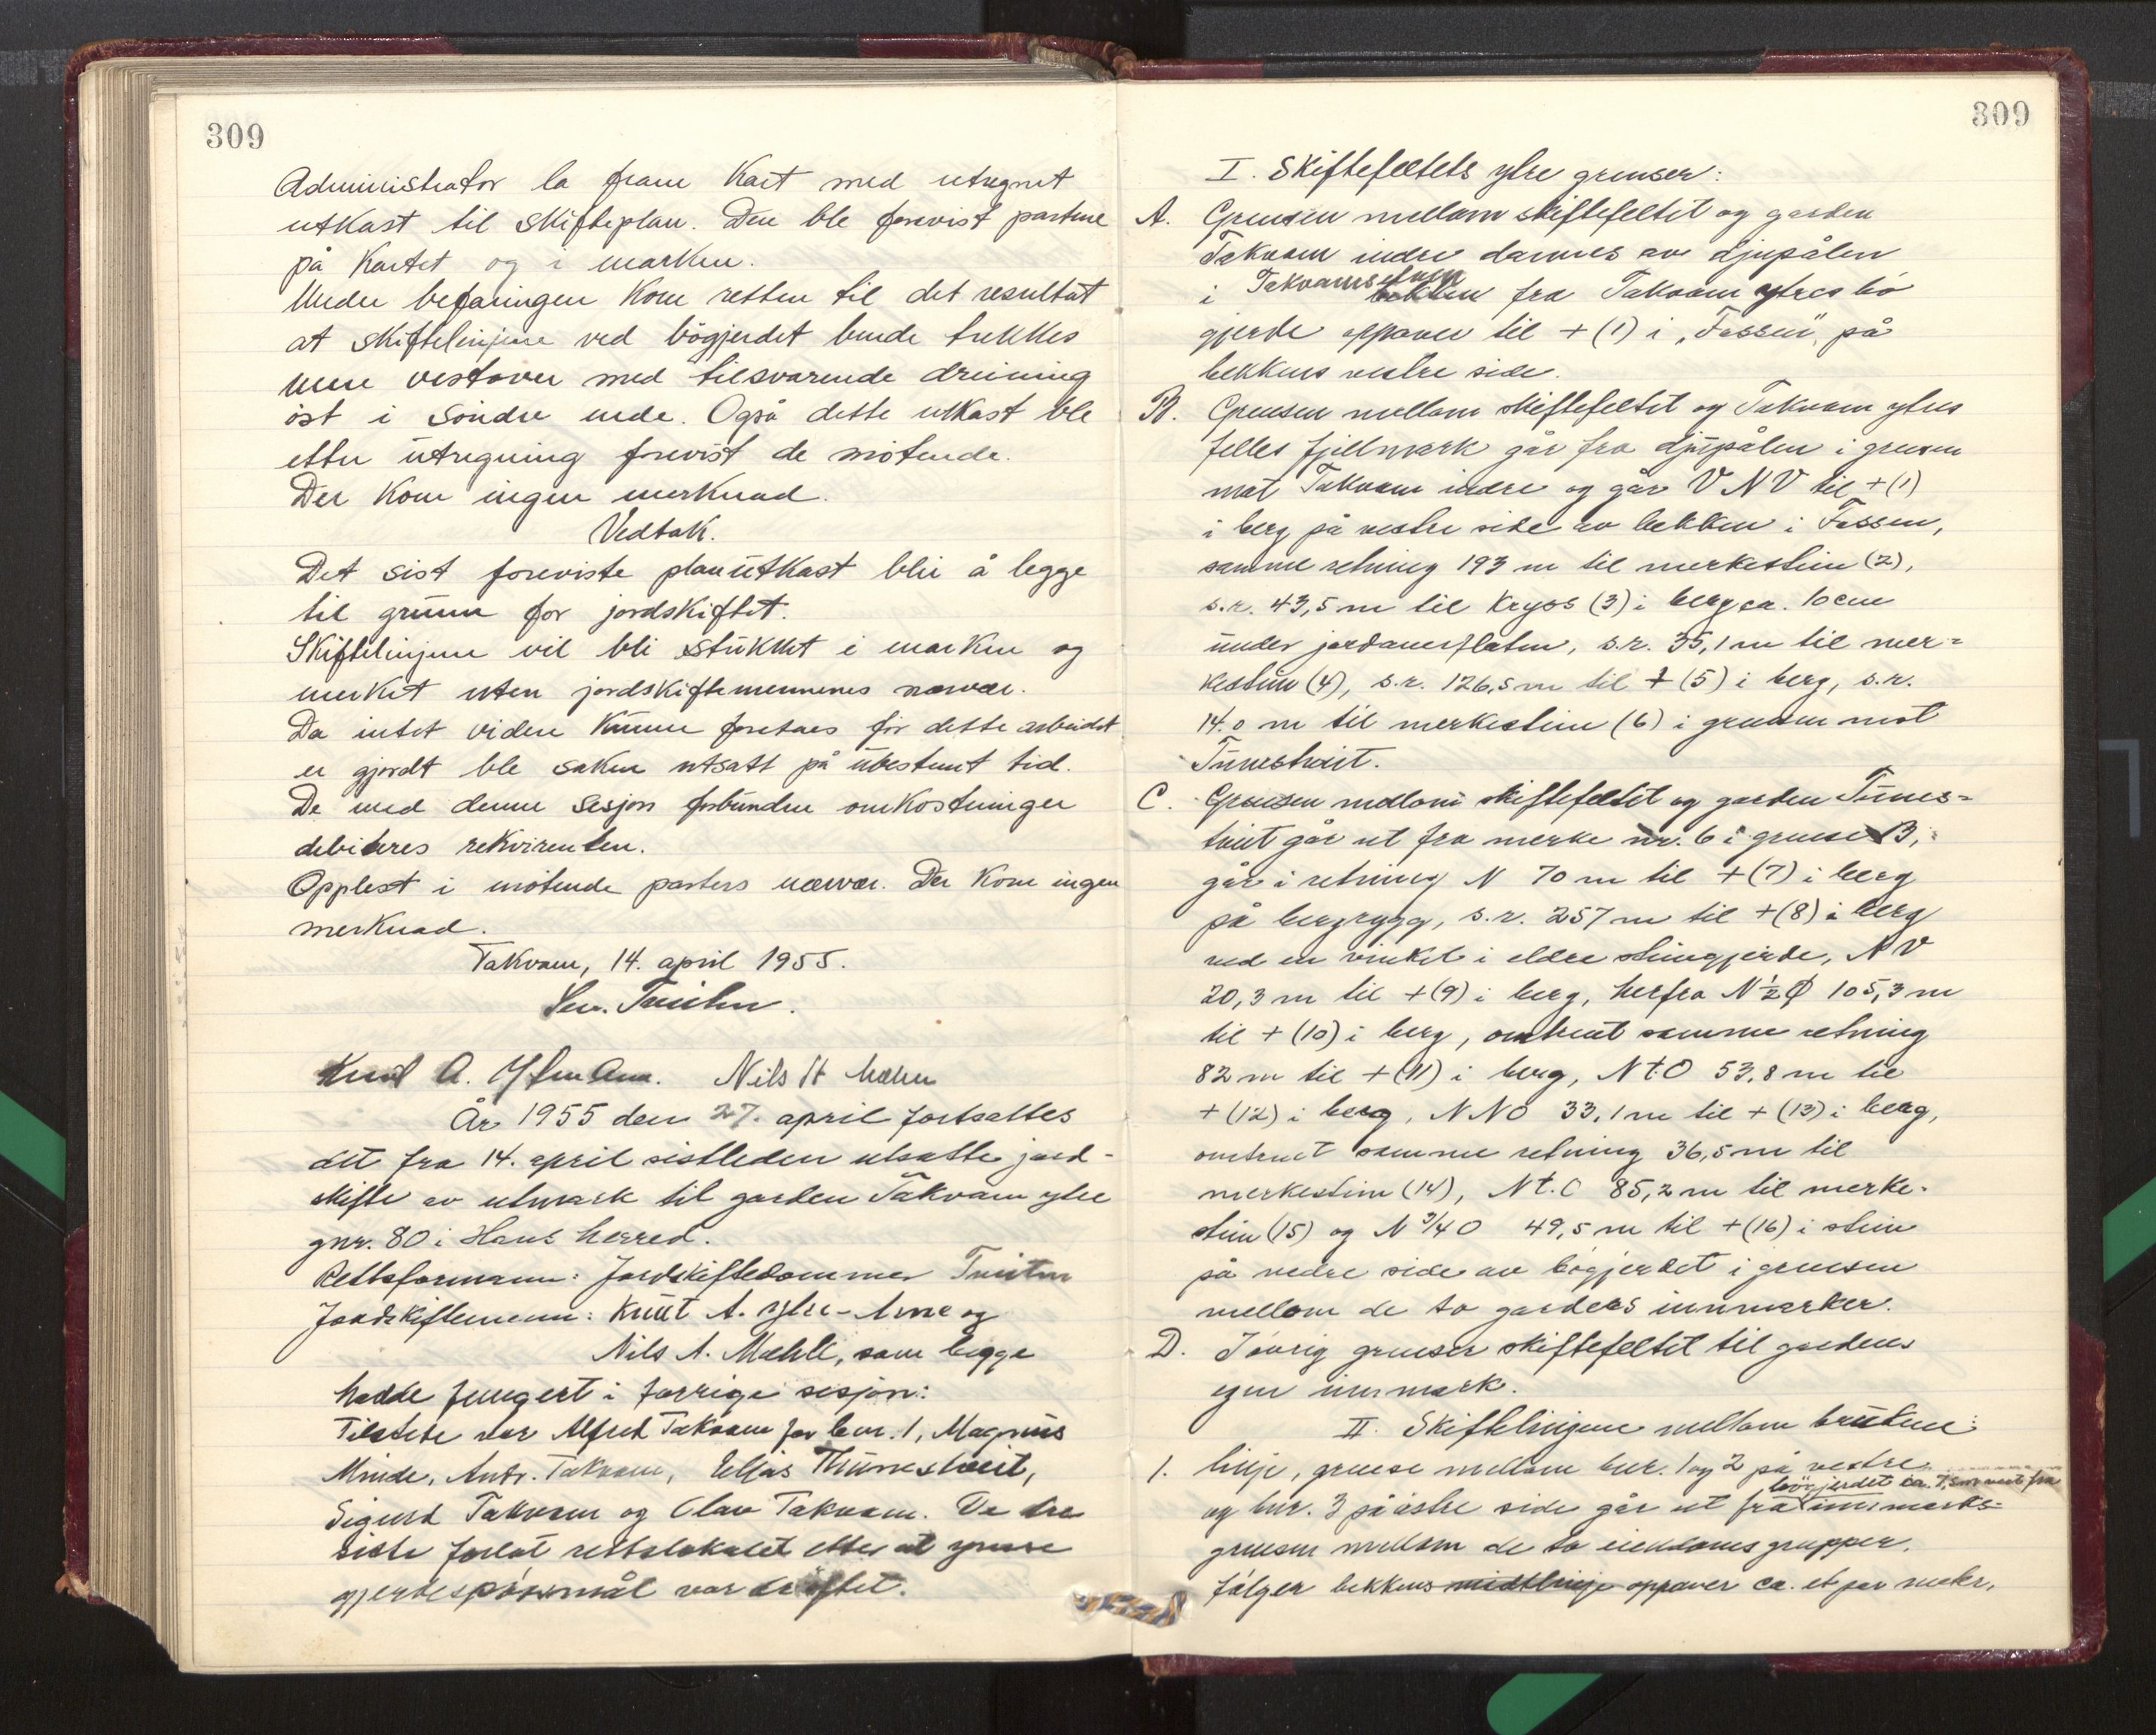 309
Administrator la fram Kart med utregnet
utkast til skifteplan. Den ble forevist partene
på Kartet og i marken.
Under befaringen kom retten til det resultat
at skiftelinjene ved bögjerdet burde trekkes
mere vestover med tilsvarende dreining
öst i söndre ende. Også dette utkast ble
etter utregning forevist de mötende.
Der kom ingen merknad.
Vedtak.
Det sist foreviste planutkast blir å legge
til grunn for jordskiftet.
Skiftelinjene vil bli stukket i marken og
merket uten jordskiftemennenes nærvær.
Da intet videre kunne foretaes för dette arbeidet
er gjordt ble saken utsatt på ubestemt tid.
De med denne sesjon forbundne omkostninger
debiteres rekvirenten.
Opplest i mötende parters nærvær. Der kom ingen
merknad.
Takvam, 14. april 1955.
Knut A. Nils A Mæhle
År 1955 den 27. april fortsattes
det fra 14. april sistleden utsatte jord-
skifte av utmark til garden Takvam ytre
gnr. 80 i Haus herred.
Rettsformann: Jordskiftedommer
Jordskiftemenn: Knut A. Ytre-Arne og
Nils A. Mæhle, som begge
hadde fungert i forrige sesjon:
Tilstede var Alfred Takvam for bnr. 1, Magnus
Minde, Andr. Takvam, Elias Thunestveit,
Sigurd Takvam og Olav Takvam. De tre
siste forlot rettslokalet etter at
gjerdespörsmål var dröftet.
309
I. Skiftefeltets ytre grenser:
A. Grensen mellom skiftefeltet og garden
Takvam indre dannes av djupålen
i Takvamselven fra Takvam ytres bö
gjerde oppover til + (1) i "Fossen" på
bekkens vestre side.
B. Grensen mellom skiftefeltet og Takvam ytres
felles fjellmark går fra djupålen i grensen
mot Takvam indre og går V N V til + (1)
i berg på vestre side av bekken i Fossen,
samme retning 193 m til merkestein (2),
s.r. 43,5 m til kryss (3) i berg ca. 10 cm
under jordoverflaten, s.r. 35,1 m til mer=
kestein (4), s.r. 126,5 m til + (5) i berg, s.r.
14.0 m til merkestein (6) i grensen mot
Tunestveit.
C. Grensen mellom skiftefeltet og garden Tunes=
tveit går ut fra merke nr. 6 i grense B,
går i retning N 70 m til + (7) i berg
på bergrygg, s.r. 257 m til + (8) i berg
ved en vinkel i eldre steingjerde, N V
20,3 m til + (9) i berg, herfra N ½ Ø 105,3 m
til + (10) i berg, omtrent samme retning
82 m til + (11) i berg, N t. O 53,8 m til
+ (12) i berg, N N O 33,1 m til + (13) i berg,
omtrent samme retning 36,5 m til
merkestein (14), N t. O 85,2 m til merke-
stein (15) og N 3/4 O 49,5 m til + (16) i stein
på nedre side av bögjerdet i grensen
mellom de to garders innmarker.
D. Iövrig grenser skiftefeltet til gardens
egen innmark.
II. Skiftelinjene mellom brukene:
1. linje, grense mellom bnr. 1 og 2 på vestre
og bnr. 3 på östre side går ut fra bögjerdet ca. fra innmarks=
grensen mellom de to eiendomsgrupper,
fölger bekkens midtlinje oppover ca. et par meter,